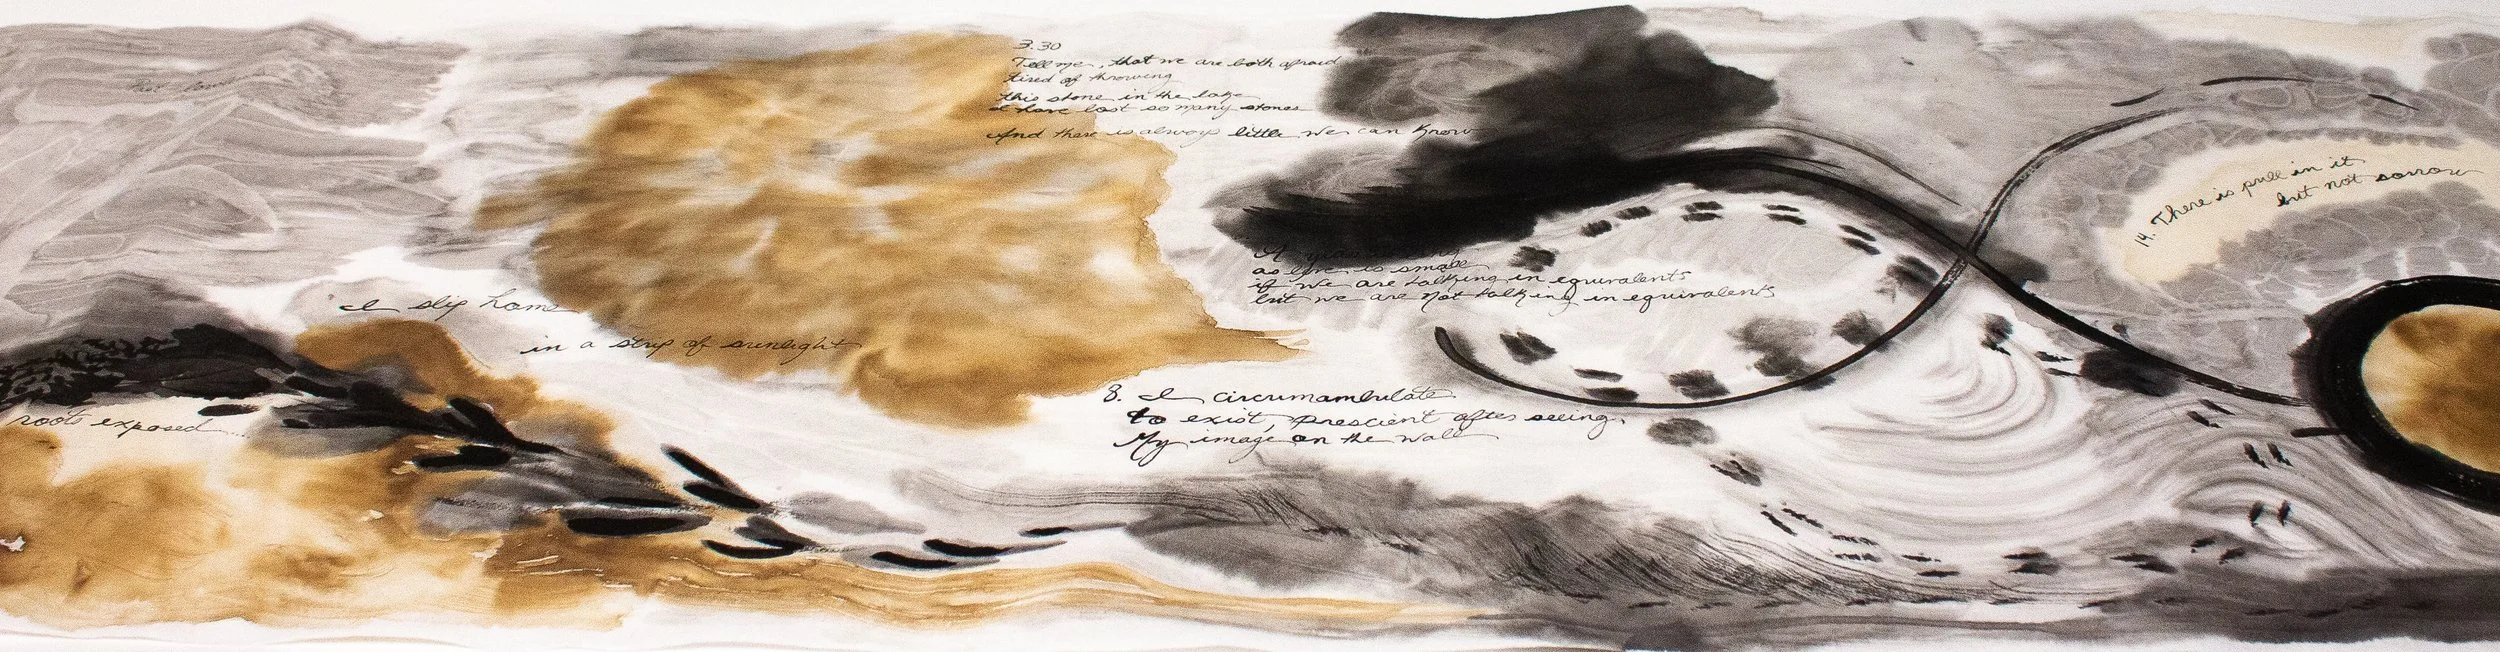 I slip home
in a strip of sunlight
roots exposed....
3.30
Tell me, that we are both afraid
tired of throwing
this stone in the lake
I have lost so many stones
And there is always little we can know
A
as
is small
if we are talking in equivalents
but we are not talking in equivalents
8. I circumambulate
to exist, prescient after seeing
My image on the wall
14. There is pull in it
but not sorrow